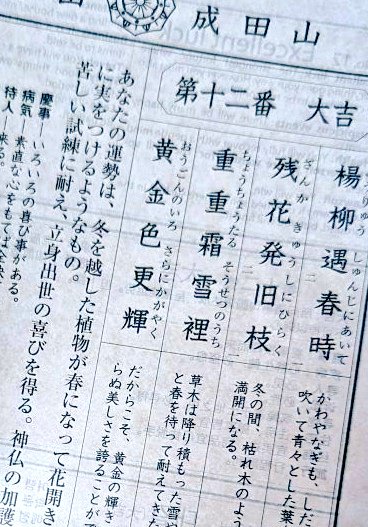 成田山
第十二番 大吉
しゅんじにあいて
楊柳遇春時
かわやなぎも、しだ
吹いて青々とした葉
ざんか きゅうしにひらく
残花発旧枝
冬の間、枯れ木のよう
満開になる。
ちょうちょうたる そうせつのうち
重重霜雪裡
草木は降り積もった雪や
と春を待って耐えてきた
おうごんのいろ さらにかがやく
黄金色更輝
だからこそ、黄金の輝き
らぬ美しさを誇ることがで
あなたの運勢は、冬を越した植物が春になって花開き
に実をつけるようなもの。
苦しい試練に耐え、立身出世の喜びを得る。神仏の加護
慶事―いろいろの喜び事がある。
病気―素直な心をもてば全快
待人―来る。